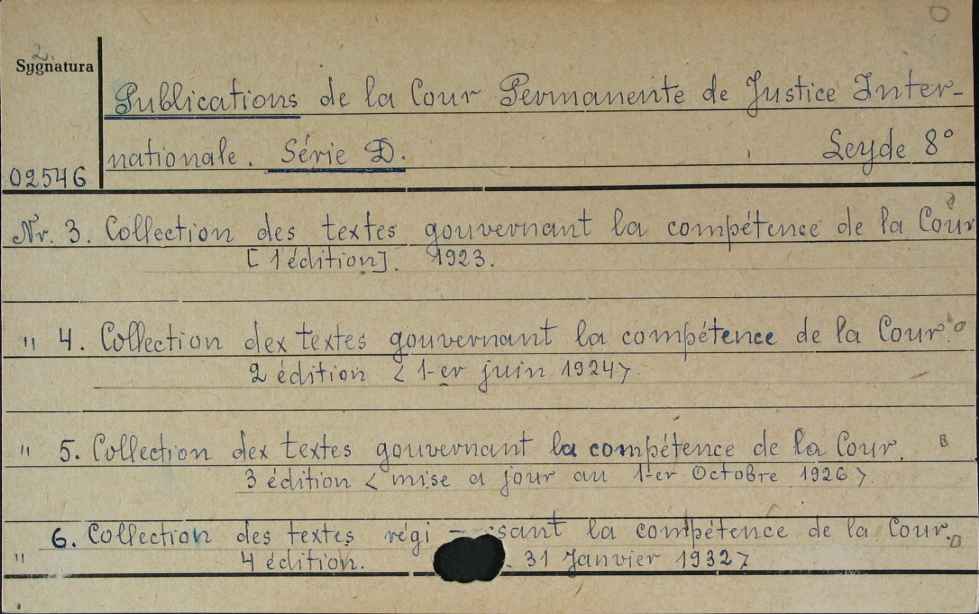 2.
Sygnatura
Publications de la Cour Permanente de Justice Inter-
nationale. Série D. Leyde 8°
02546
Nr. 3. Collection des textes gouvernant la compétence de la Cour
[1 édition]. 1923.
" 4. Collection dex textes gouvernant la compétence de la Cour.
2 édition < 1-er juin 1924>
" 5. Collection dex textes gouvernant la compétence de la Cour.
3 édition < mise a jour au 1-er Octobre 1926 >
" 6. Collection des textes régi sant la compétence de la Cour.
4 édition. 31 Janvier 1932>